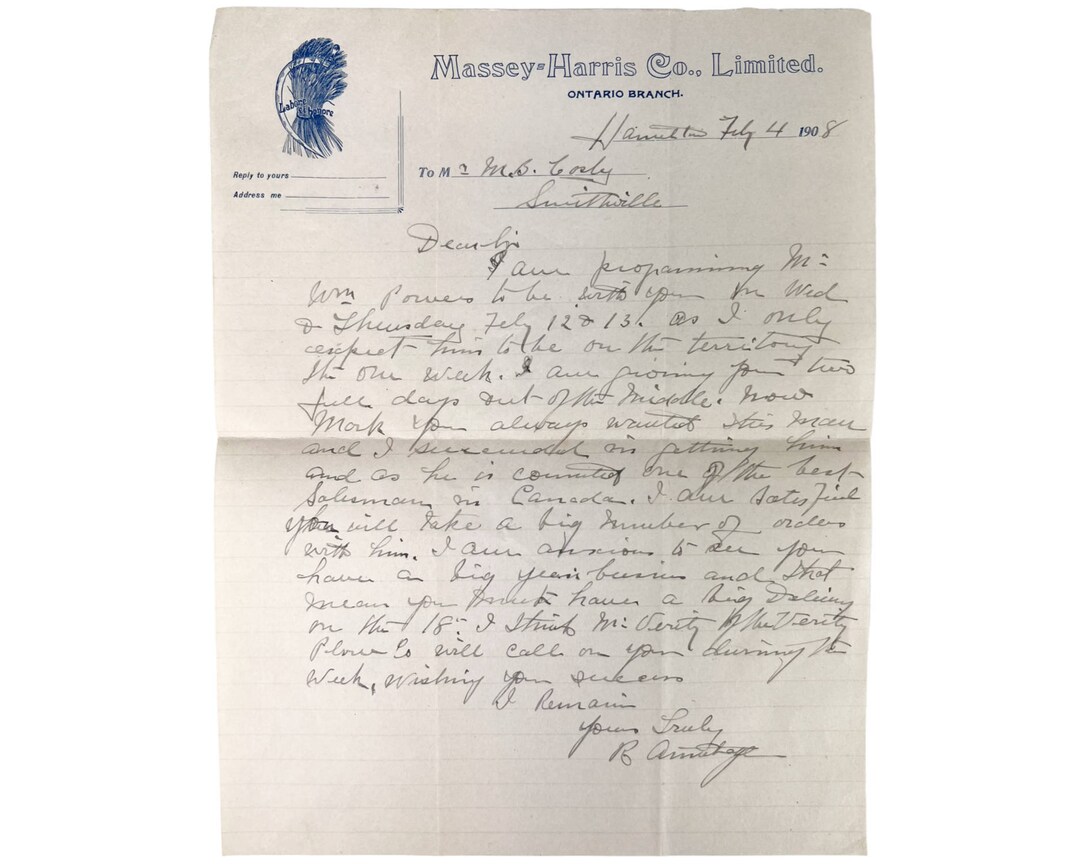 Massey-Harris Co., Limited.
ONTARIO BRANCH.
Labore et honore
Hamilton Feby 4 1908
Reply to yours
Address me
To Mr M.S. Cosby
Smithville
Dear Sir
I am programming Mr
Wm Powers to be with you on Wed
& Thursday Feby 12 & 13. as I only
expect him to be on the territory
the one week. I am giving you two
full days out of the middle. Now
Mark you always wanted this man
and I succeeded in getting him
and as he is counted one of the best
Salesman in Canada. I am satisfied
you will take a big number of orders
with him. I am anxious to see you
have a big years business and that
mean you must have a big Delivery
on the 18th. I think Mr Verity of the Verity
Plow Co will call on you during the
week, wishing you success
I Remain
yours Truly
R Armitage